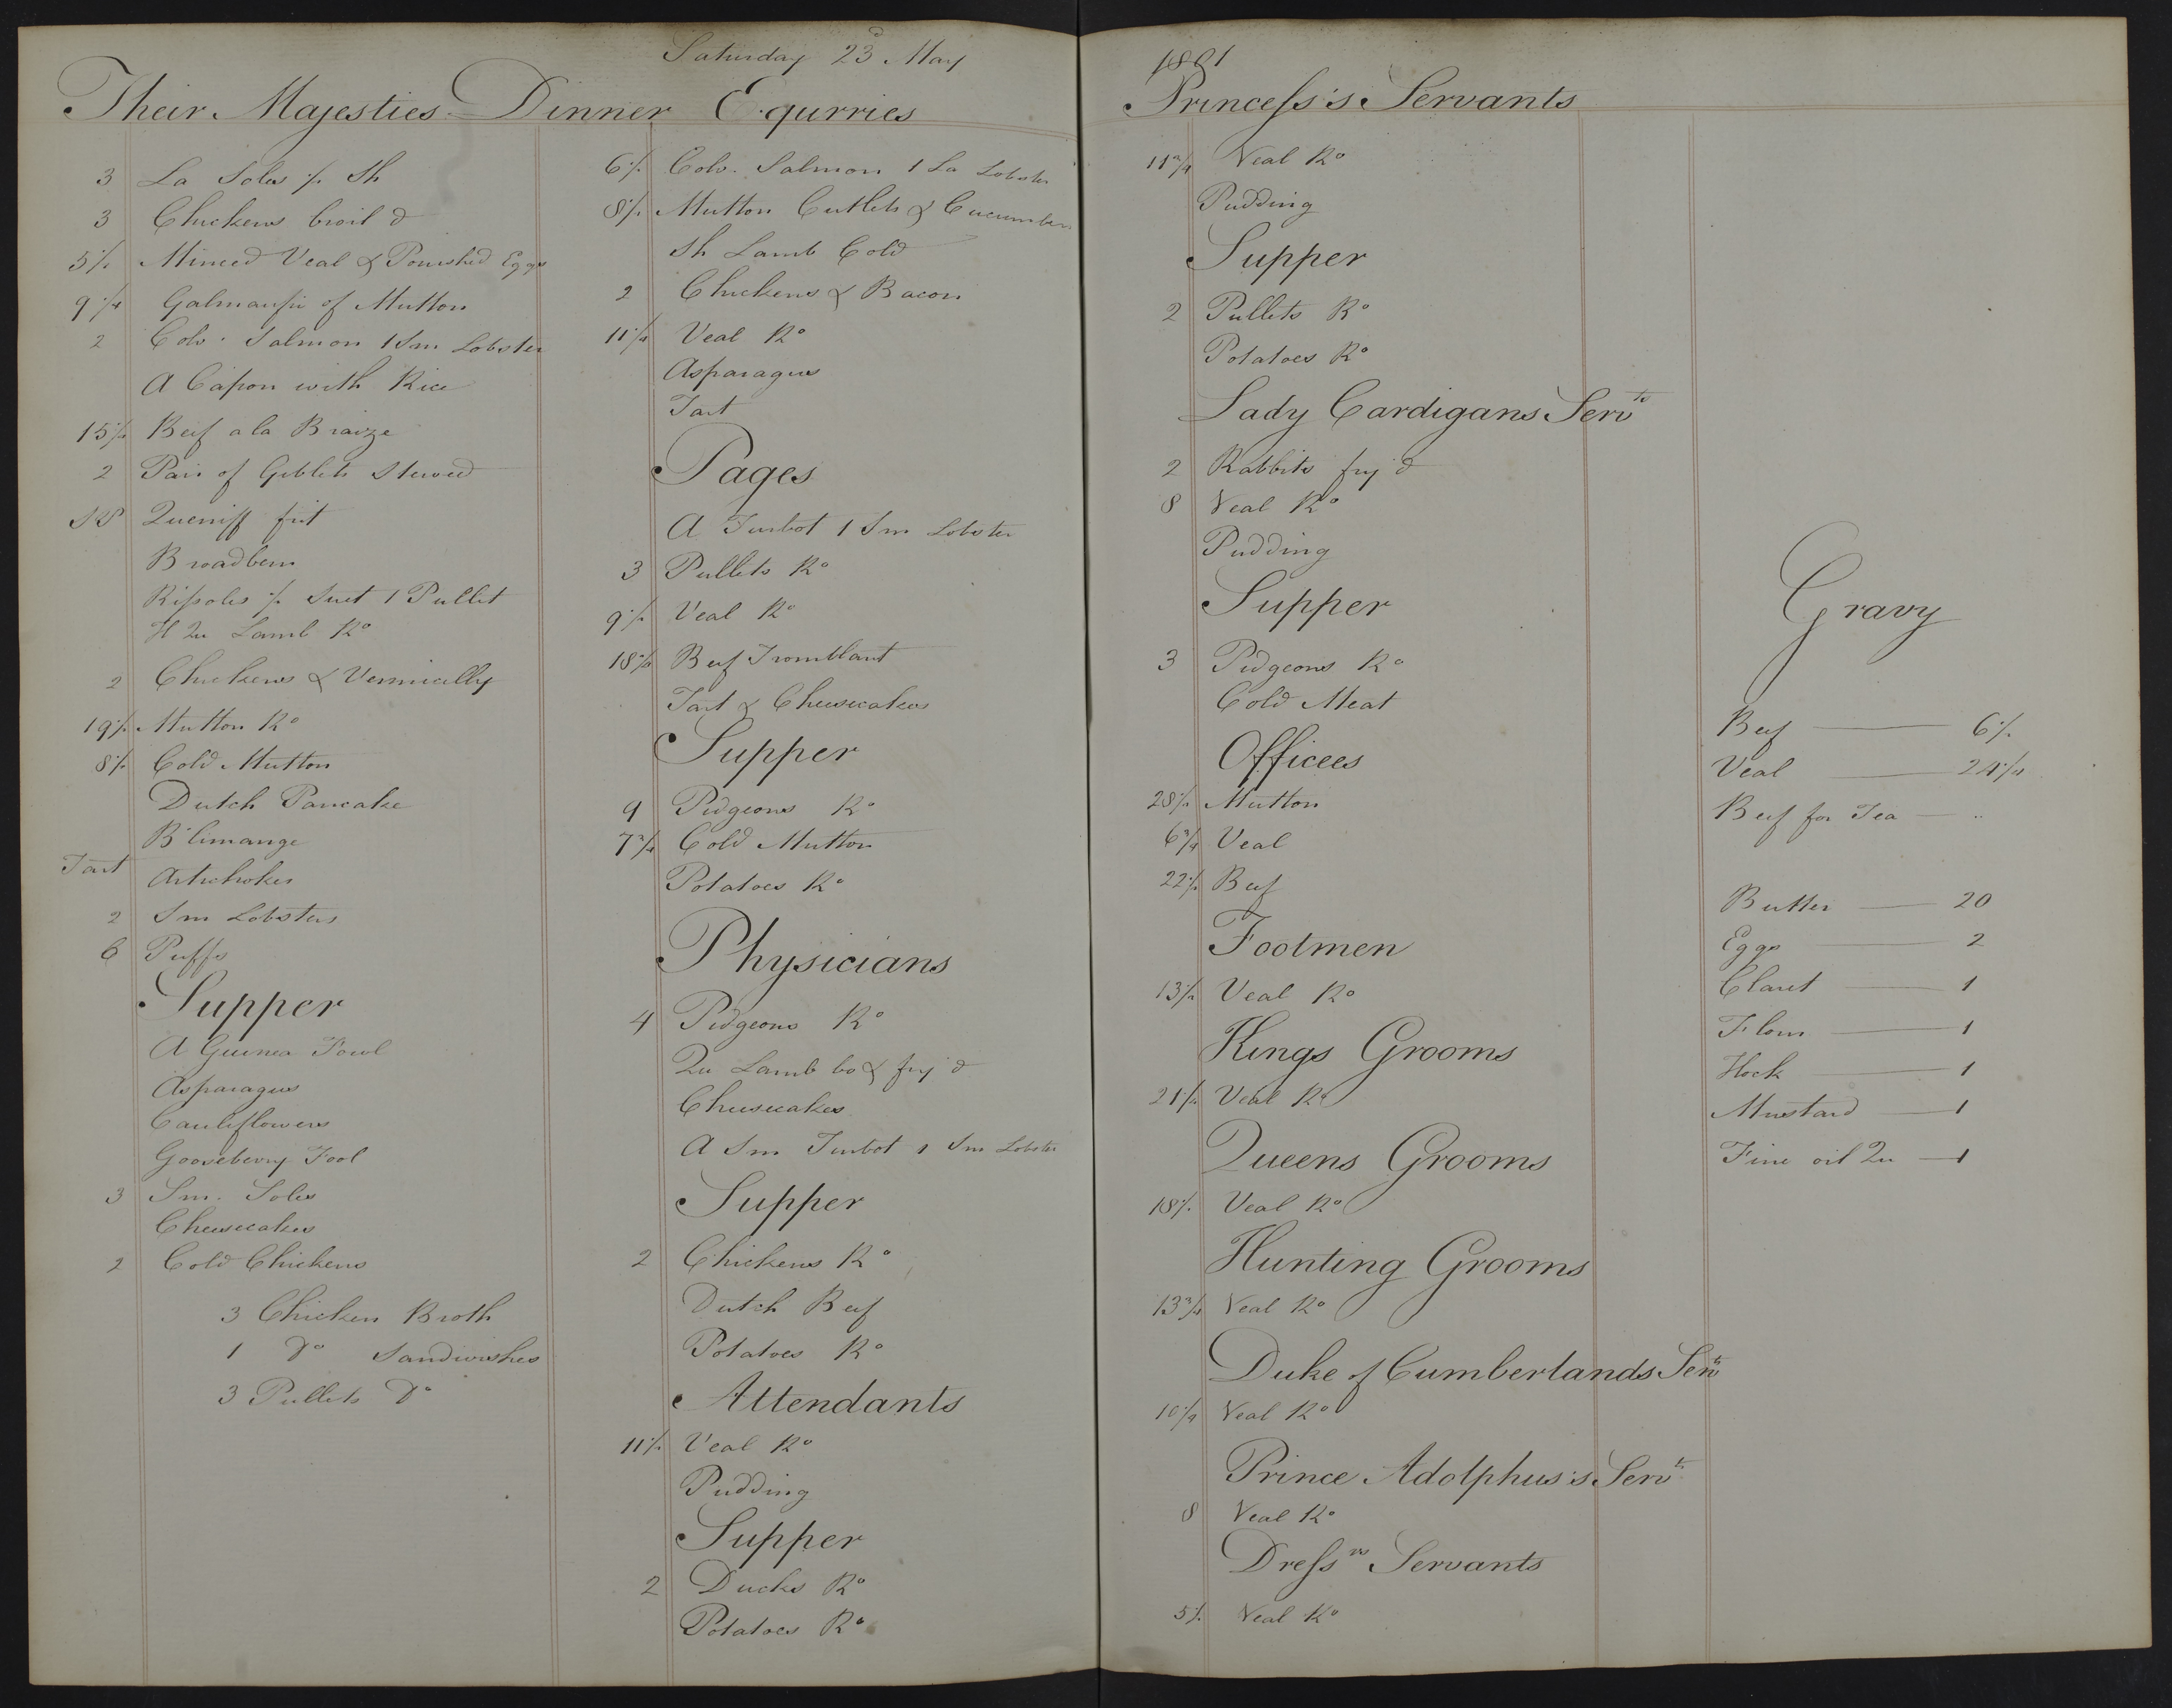 Saturday 23d May
1801
Their Majesties Dinner
3 La Soles 1/2 Sh
3 Chickens broil'd
5 1/2 Minced Veal & Pouched Eggs
9 1/4 Galmaufri of Mutton
2 Colo. Salmon 1 Sm Lobster
A Capon with Rice
15 1/2 Beef a la Braize
2 Pair of Giblets Stewed
Queniff frit
Broadbern
Rissoles 1/2 Suet 1 Pullet
H Qu Lamb Ro
2 Chickens & Vermicelly
19 1/2 Mutton Ro
8 1/2 Cold Mutton
Dutch Pancake
Blimange
Tart Artichokes
2 Sm Lobsters
6 Puffs
Supper
A Guinea Fowl
Asparagus
Cauliflowers
Gooseberry Fool
3 Sm. Soles
Cheesecakes
2 Cold Chickens
3 Chicken Broth
1 Do Sandwishes
3 Pullets Do
Equrries
6 1/2 Colo. Salmon 1 La Lobster
8 1/2 Mutton Cutlets & Cucumbers
Sh Lamb Cold
2 Chickens & Bacon
11 1/4 Veal Ro
Asparagus
Tart
Pages
A Turbot 1 Sm Lobster
3 Pullets Ro
9 1/2 Veal Ro
18 1/2 Beef Tromblant
Tart & Cheesecakes
Supper
9 Pidgeons Ro
7 3/4 Cold Mutton
Potatoes Ro
Physicians
4 Pidgeons Ro
Qu Lamb bo & fry'd
Cheesecakes
A Sm Turbot 1 Sm Lobster
Supper
2 Chickens Ro
Dutch Beef
Potatoes Ro
Attendants
11 1/2 Veal Ro
Pudding
Supper
2 Ducks Ro
Potatoes Ro
Princess's Servants
11 3/4 Veal Ro
Pudding
Supper
2 Pullets Ro
Potatoes Ro
Lady Cardigans Servts
2 Rabbits fry'd
8 Veal Ro
Pudding
Supper
3 Pidgeons Ro
Cold Meat
Officees
28 1/2 Mutton
6 3/4 Veal
22 1/2 Beef
Footmen
13 1/2 Veal Ro
Kings Grooms
21 1/2 Veal Ro
Queens Grooms
18 1/2 Veal Ro
Hunting Grooms
13 3/4 Veal Ro
Duke of Cumberlands Servts
10 1/4 Veal Ro
Prince Adolphus's Servts
8 Veal Ro
Dressrs Servants
5 1/2 Veal Ro
Gravy
Beef 6 1/2
Veal 24 1/4
Beef for Tea ..
Butter 20
Eggs 2
Claret 1
Flour 1
Hock 1
Mustard 1
Fine oil Qu 1